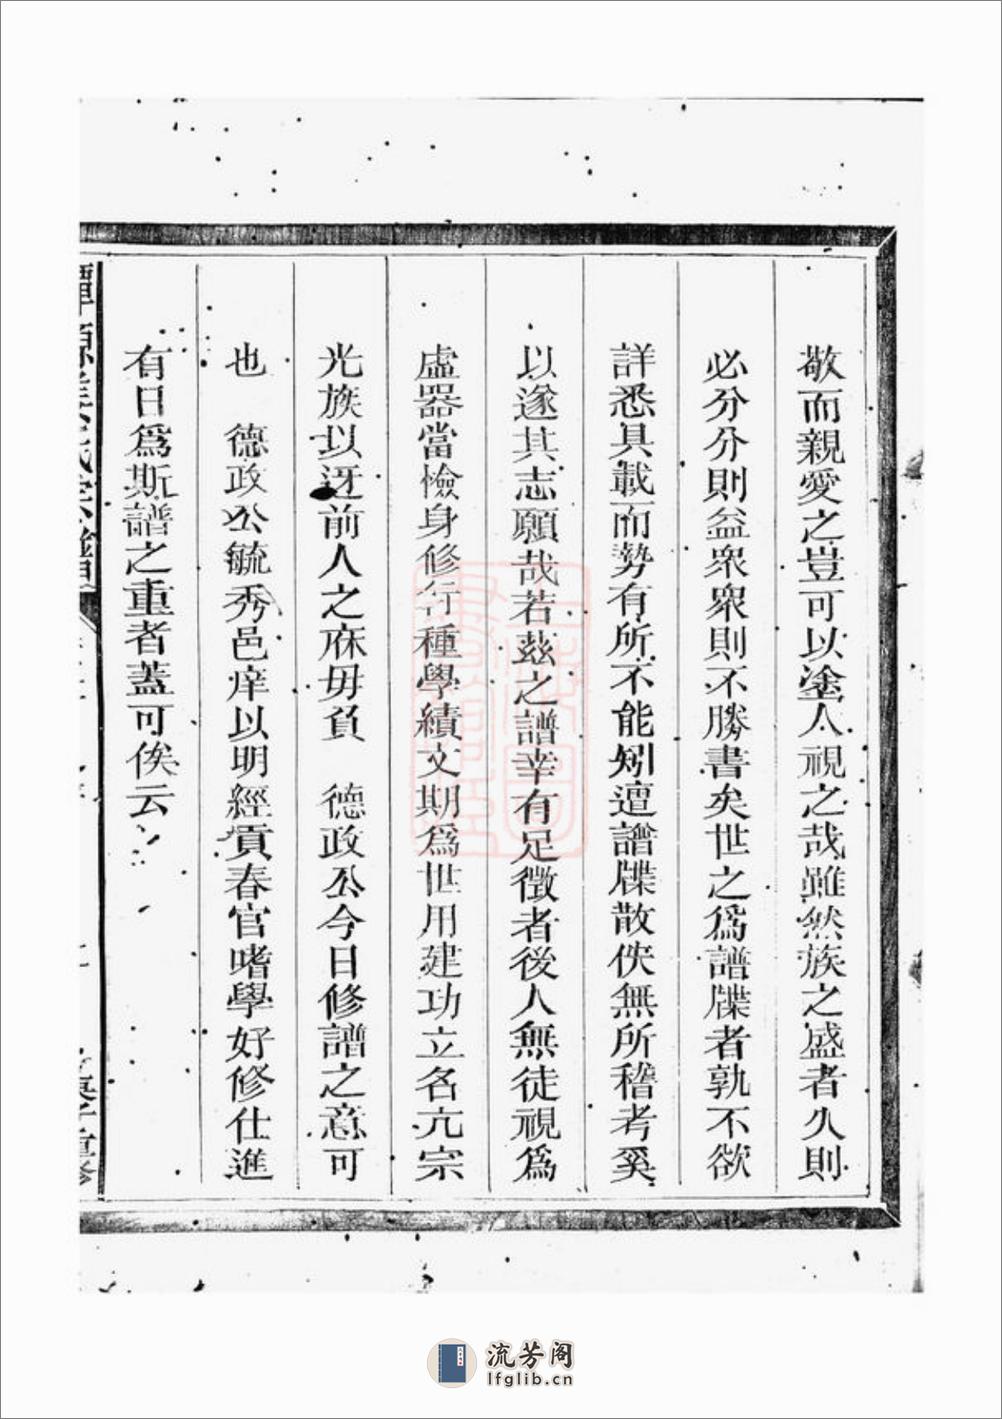 敬而親愛之豈可以塗人視之哉雖然族之盛者久則
必分分則益衆衆則不勝書矣世之爲譜牒者孰不欲
詳悉具載而勢有所不能矧邅譜牒散佚無所稽考奚
以遂其志願哉若茲之譜幸有足徵者後人無徒視爲
虛器當檢身修行種學績文期爲世用建功立名亢宗
光族以迓前人之庥毋負　德政公今日修譜之意可
也　德政公毓秀邑庠以明經貢春官嗜學好修仕進
有日爲斯譜之重者蓋可俟云
流芳阁
lfglib.cn